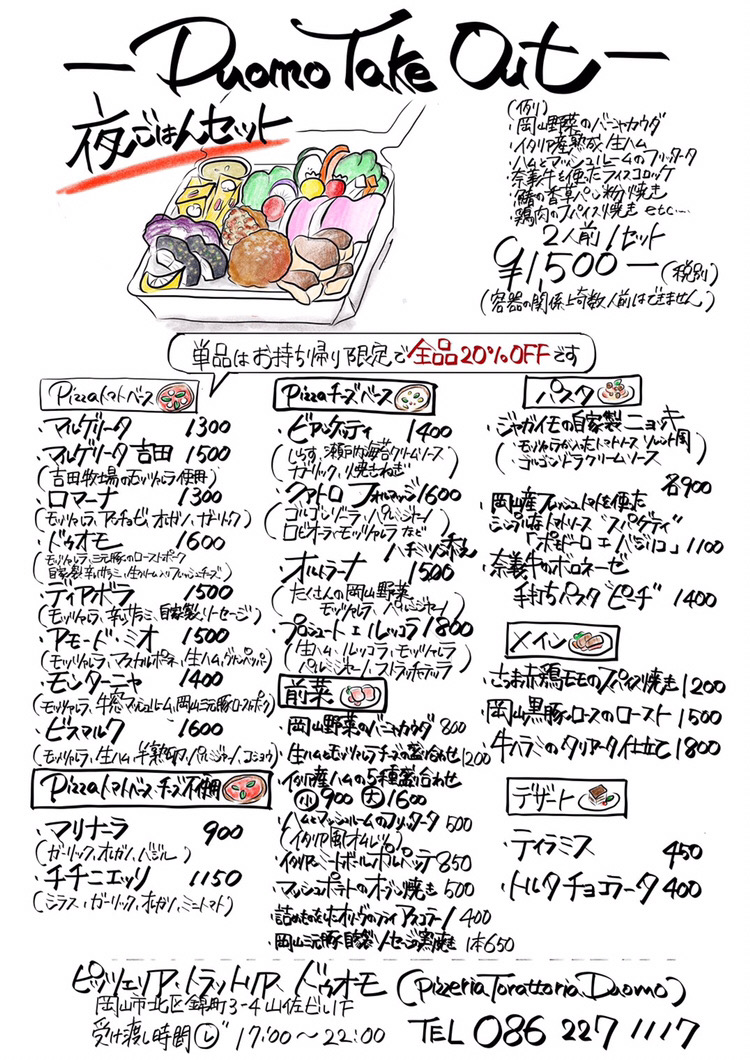 Duomo Take Out
夜ごはんセット
(例り)
・岡山野菜のバーニャカウダ
・イタリア産熟成生ハム
・ハムとマッシュルームのフリッタータ
・奈義牛を使ったライスコロッケ
・鯖の香草パン粉焼き
・鶏肉のスパイス焼き etc...
2人前1セット
¥1,500ー(税別)
(容器の関係上奇数人前はできません)
単品はお持ち帰り限定で全品20%OFFです
Pizzaトマトベース
・マルゲリータ 1300
・マルゲリータ吉田 1500
(吉田牧場のモッツァレラ使用)
・ロマーナ 1300
(モッツァレラ、アンチョビ、オレガノ、ガーリック)
・ドゥオモ 1600
(モッツァレラ、三元豚のローストポーク
自家製辛いサラミ、生クリーム入りフレッシュチーズ)
・ディアボラ 1500
(モッツァレラ、辛いサラミ、自家製ソーセージ)
・アモード・ミオ 1500
(モッツァレラ、マスカルポーネ、生ハム、)
・モンターニャ 1400
(モッツァレラ、マッシュルーム、岡山三元豚ローストポーク)
・ビスマルク 1600
(モッツァレラ、生ハム、半熟卵、パルミジャーノ、コショウ)
Pizzaトマトベース、チーズ不使用
・マリナーラ 900
(ガーリック、オレガノ、バジル)
・チチニエッリ 1150
(シラス、ガーリック、オレガノ、ミニトマト)
Pizzaチーズベース
・ビアンケッティ 1400
(しらす、瀬戸内海苔クリームソース
ガーリック、リ焼きねぎ)
・クアトロ フォルマッジ 1600
(ゴルゴンゾーラ、パルミジャーノ
ロビオーラ、モッツァレラなど
ハチミツ添え)
・オルトラーナ 1500
(たくさんの岡山野菜
モッツァレラ、パルミジャーノ)
・プロシュート エ ルッコラ 1800
(生ハム、ルッコラ、モッツァレラ
パルミジャーノ、ストラッチャテッラ)
前菜
・岡山野菜のバーニャカウダ 800
・生ハムとモッツァレラチーズの盛り合わせ 1200
・イタリア産ハムの5種盛り合わせ
小 900 大 1600
・ハムとマッシュルームのフリッタータ 500
(イタリア風オムレツ)
・イタリアミートボール ポルペッテ 850
・マッシュポテトのオーブン焼き 500
・詰めものをしたオリーヴのフライ アスコラーノ 400
・岡山三元豚自家製ソーセージの窯焼き 1本650
パスタ
・ジャガイモの自家製ニョッキ
(・モッツァレラが入ったトマトソース ソレント風
・ゴルゴンゾーラクリームソース)
各900
・岡山産フレッシュトマトを使った
シンプルなトマトソース "スパゲティ"
「ポモドーロ エ バジリコ」 1100
・奈義牛のボロネーゼ
手打ちパスタ "ピーチ" 1400
メイン
・さぬき赤鶏モモのスパイス焼き 1200
・岡山黒豚ロースのロースト 1500
・牛ハラミのタリアータ仕立て 1800
デザート
・ティラミス 450
・トルタチョコラータ 400
ピッツェリア・トラットリア ドゥオモ (Pizzeria Torattoria Duomo)
岡山市北区錦町3-4山佐ビル1F
受け渡し時間 17:00〜22:00 TEL 086 227 1117